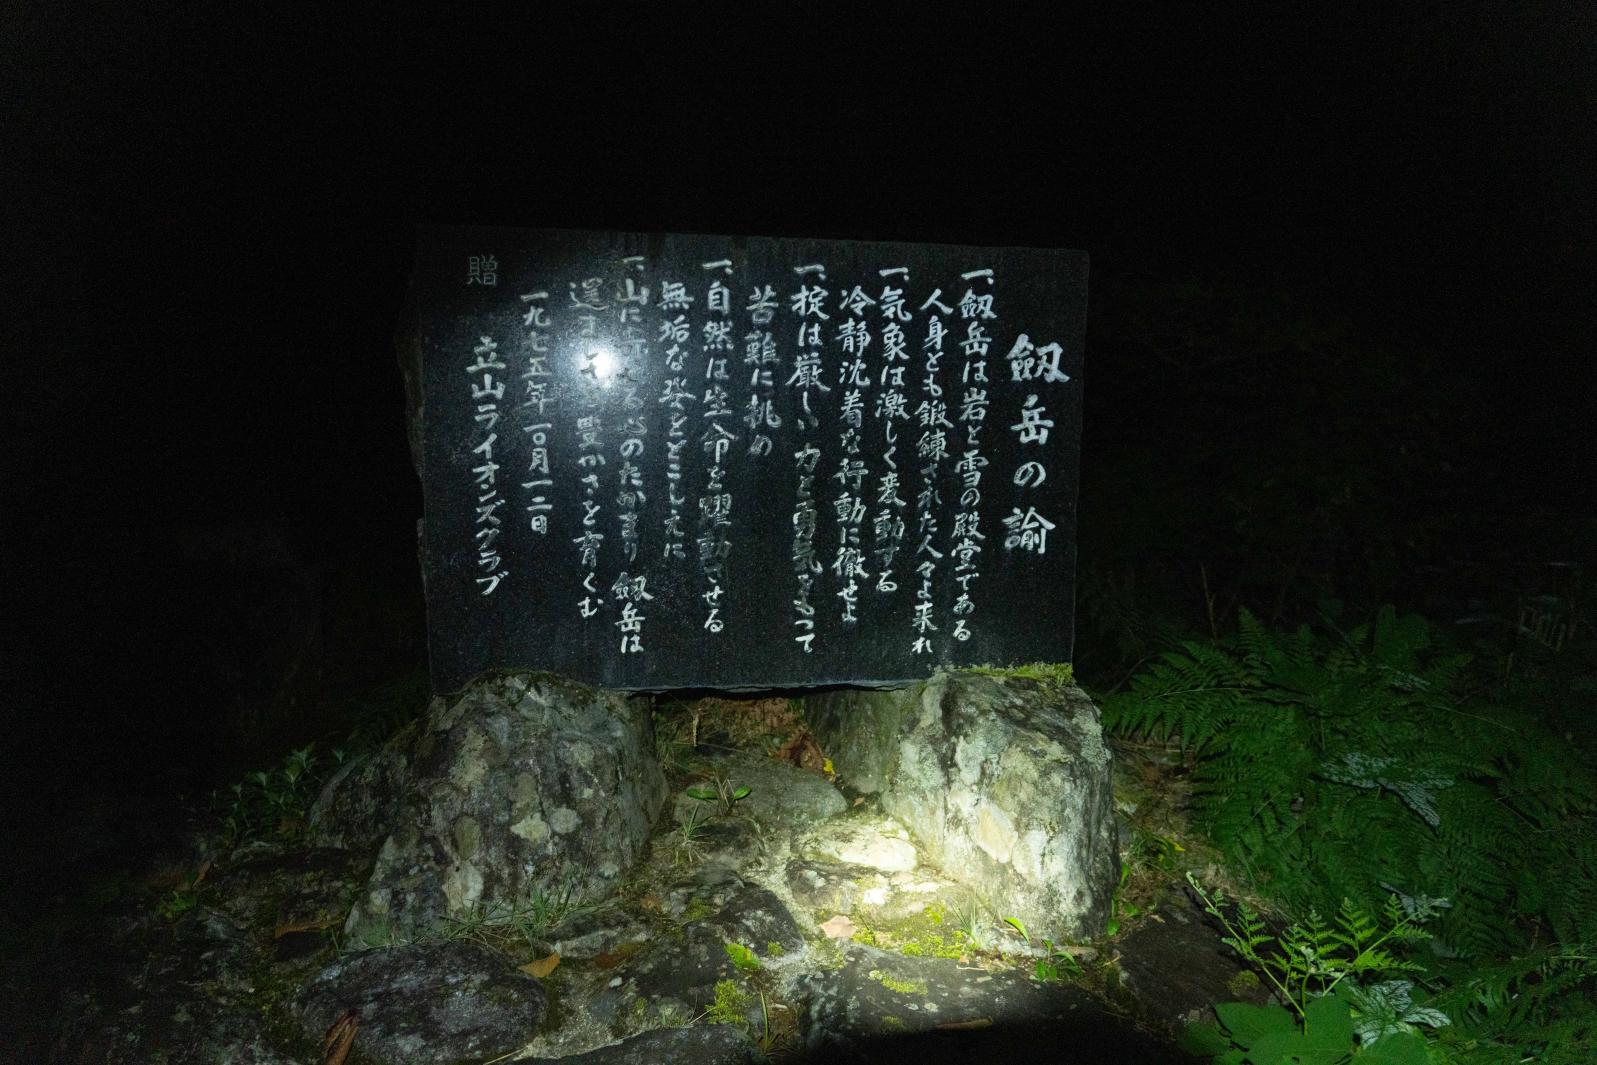 劔岳の諭
一、劔岳は岩と雪の殿堂である
人身とも鍛練された人々よ来れ
一、気象は激しく変動する
冷静沈着な行動に徹せよ
一、掟は厳しい力と勇気をもって
苦難に挑め
一、自然は生命を躍動させる
無垢な姿をとこしえに
一、山に る心のたかまり 劔岳は
豊かさを育くむ
一九七五年一〇月一二日
贈 立山ライオンズクラブ